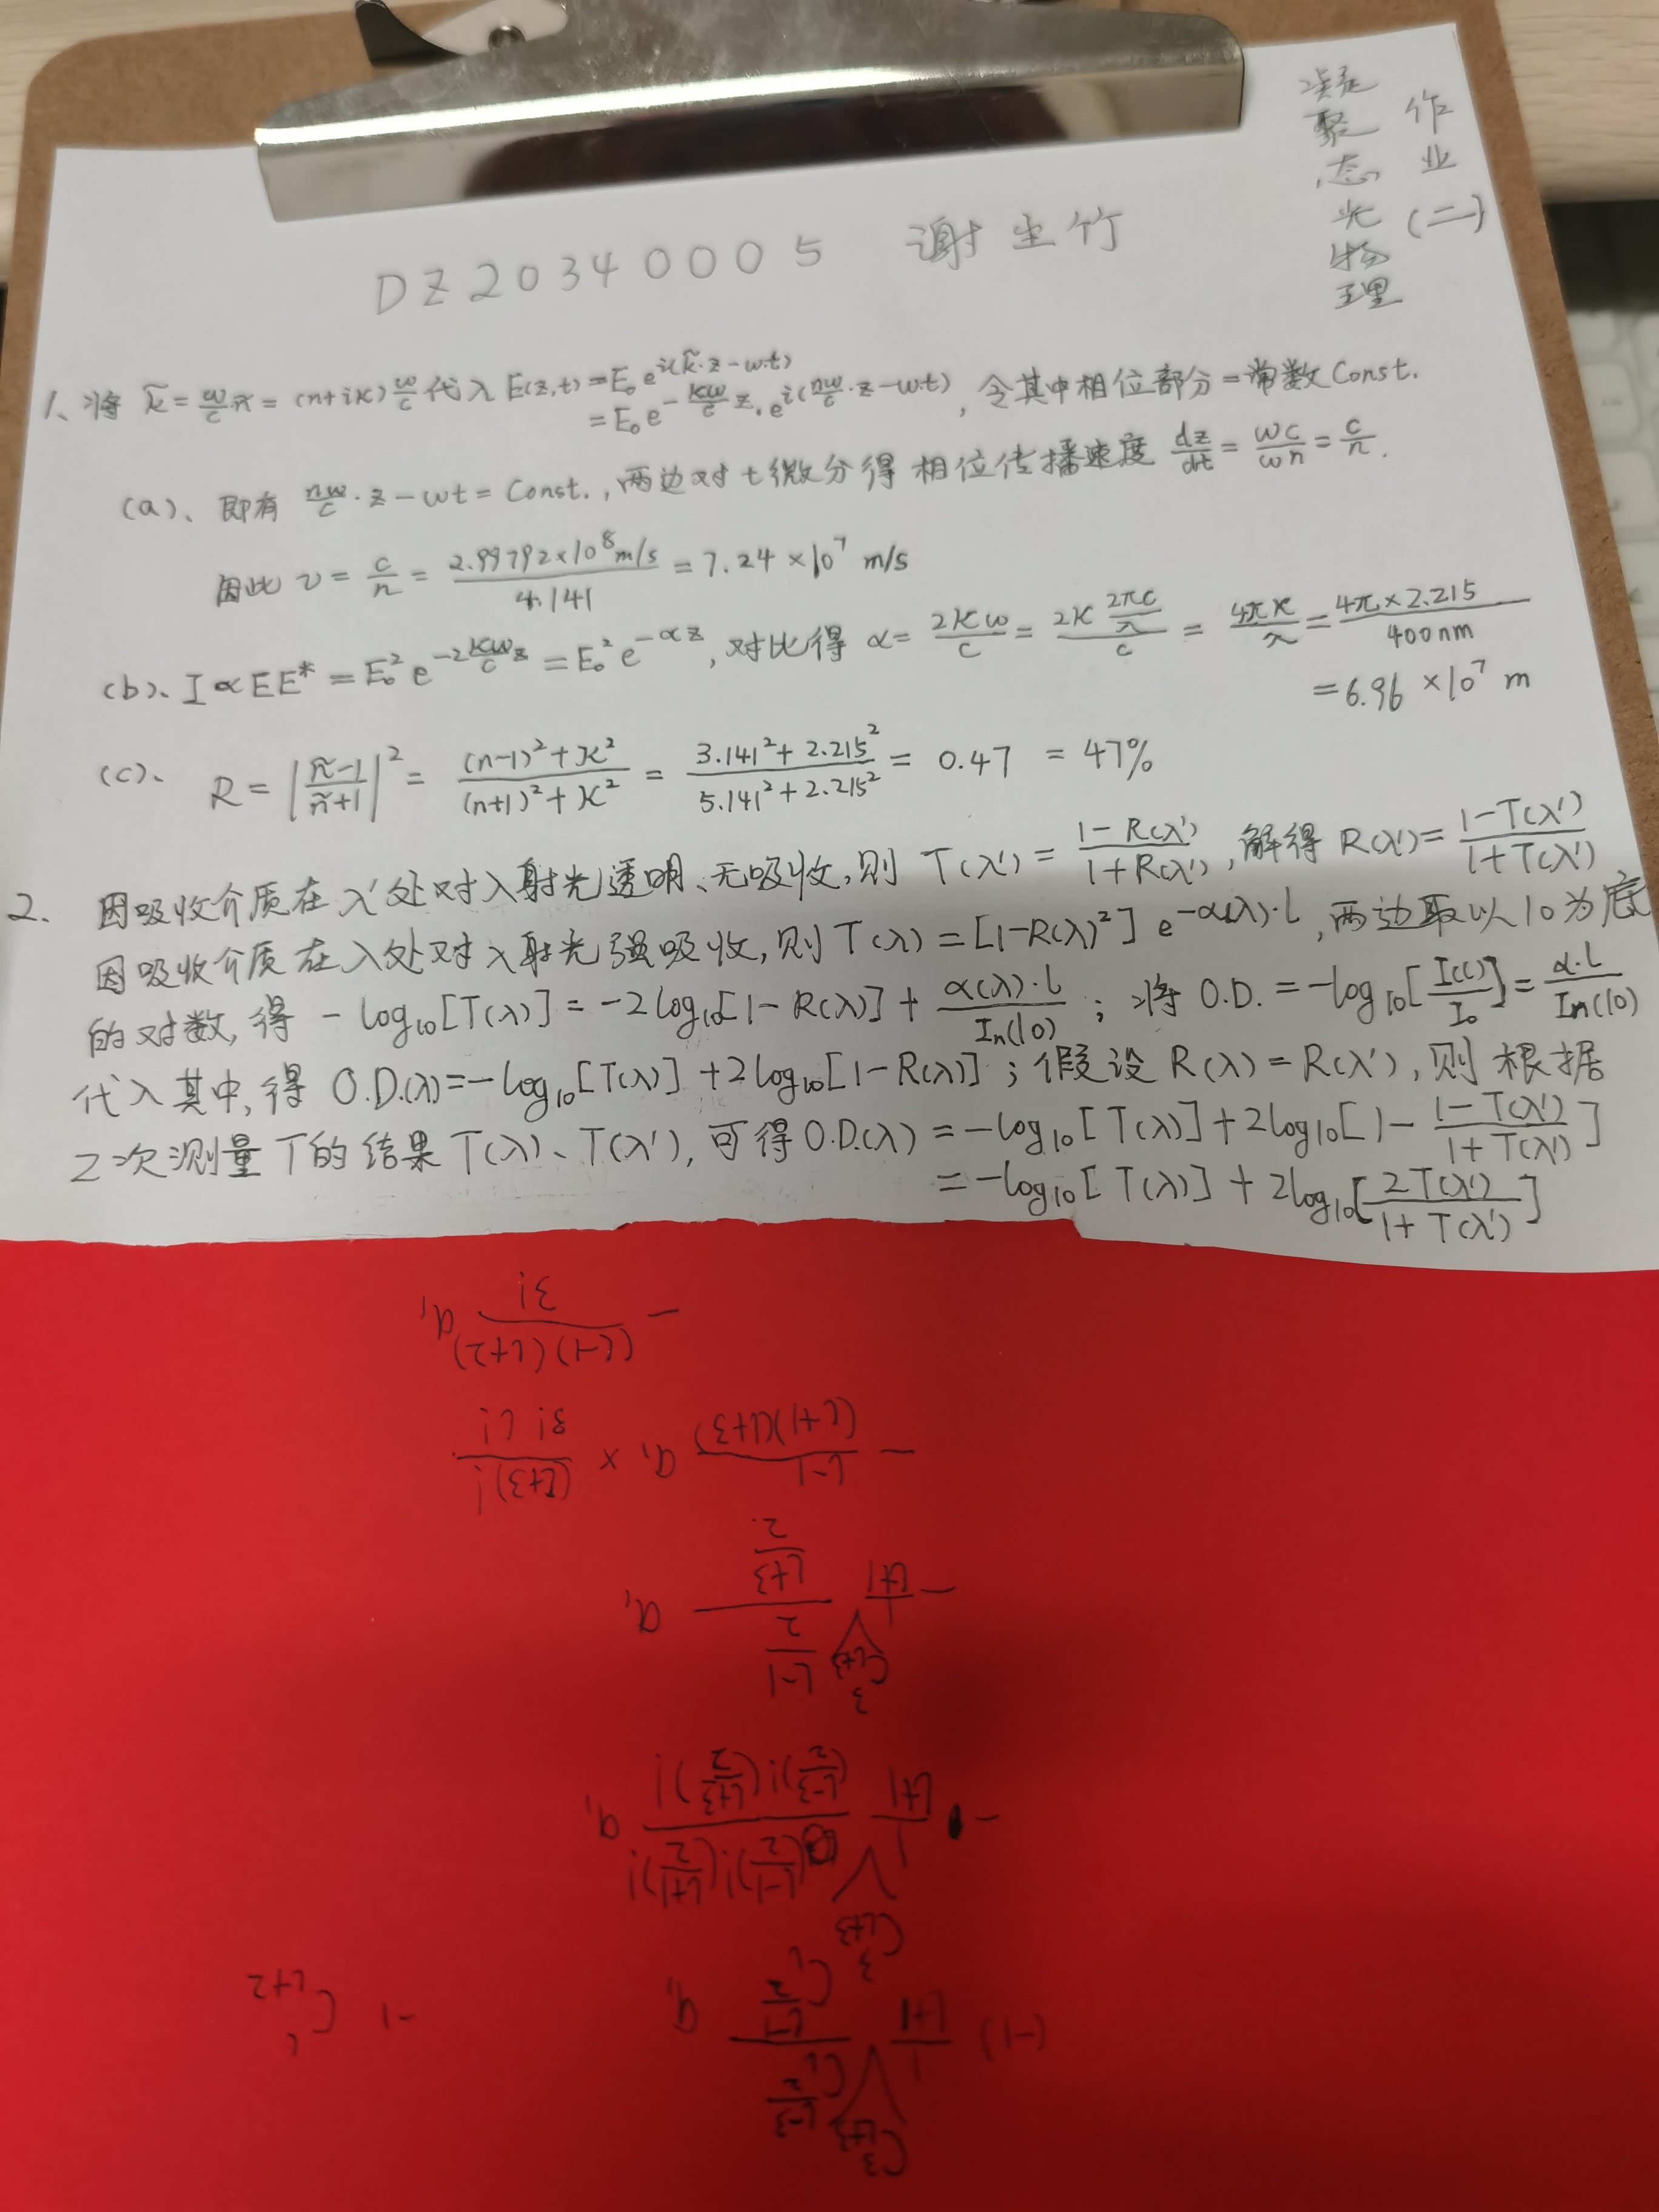 凝聚态光物理
作业(二)
DZ20340005 谢尘竹
1、将 k̃ = ω/c ñ = (n+iκ) ω/c 代入 E(z,t) = E₀ e^{i(k̃·z-ωt)}
= E₀ e^{-κω/c z}·e^{i(nω/c·z-ωt)}, 令其中相位部分=常数Const.
(a)、即有 nω/c·z-ωt = Const., 两边对t微分得相位传播速度 dz/dt = ωc/ωn = c/n.
因此 v = c/n = 2.99792×10⁸m/s / 4.141 = 7.24×10⁷ m/s
(b)、I∝EE* = E₀² e^{-2κω/c z} = E₀² e^{-αz}, 对比得 α = 2κω/c = 2κ (2πc/λ)/c = 4πκ/λ = 4π×2.215/400nm
= 6.96×10⁷ m
(c)、R = |(ñ-1)/(ñ+1)|² = ((n-1)²+κ²)/((n+1)²+κ²) = (3.141²+2.215²)/(5.141²+2.215²) = 0.47 = 47%
2、因吸收介质在λ'处对入射光透明、无吸收,则 T(λ') = (1-R(λ'))/(1+R(λ')), 解得 R(λ') = (1-T(λ'))/(1+T(λ'))
因吸收介质在λ处对入射光强吸收,则 T(λ) = [1-R(λ)²] e^{-α(λ)·l}, 两边取以10为底
的对数,得 -log₁₀[T(λ)] = -2log₁₀[1-R(λ)] + α(λ)·l/ln(10) ; 将 O.D. = -log₁₀[I(l)/I₀] = α·l/ln(10)
代入其中,得 O.D.(λ) = -log₁₀[T(λ)] + 2log₁₀[1-R(λ)] ; 假设 R(λ) = R(λ'), 则根据
2次测量T的结果 T(λ)、T(λ'), 可得 O.D.(λ) = -log₁₀[T(λ)] + 2log₁₀[1 - (1-T(λ'))/(1+T(λ'))]
= -log₁₀[T(λ)] + 2log₁₀[2T(λ')/(1+T(λ'))]
- (l-1)(l+2)/3! a₁
- (l-1)/((l+1)(l+3)) a₁ × (l+3)!/(3! l!)